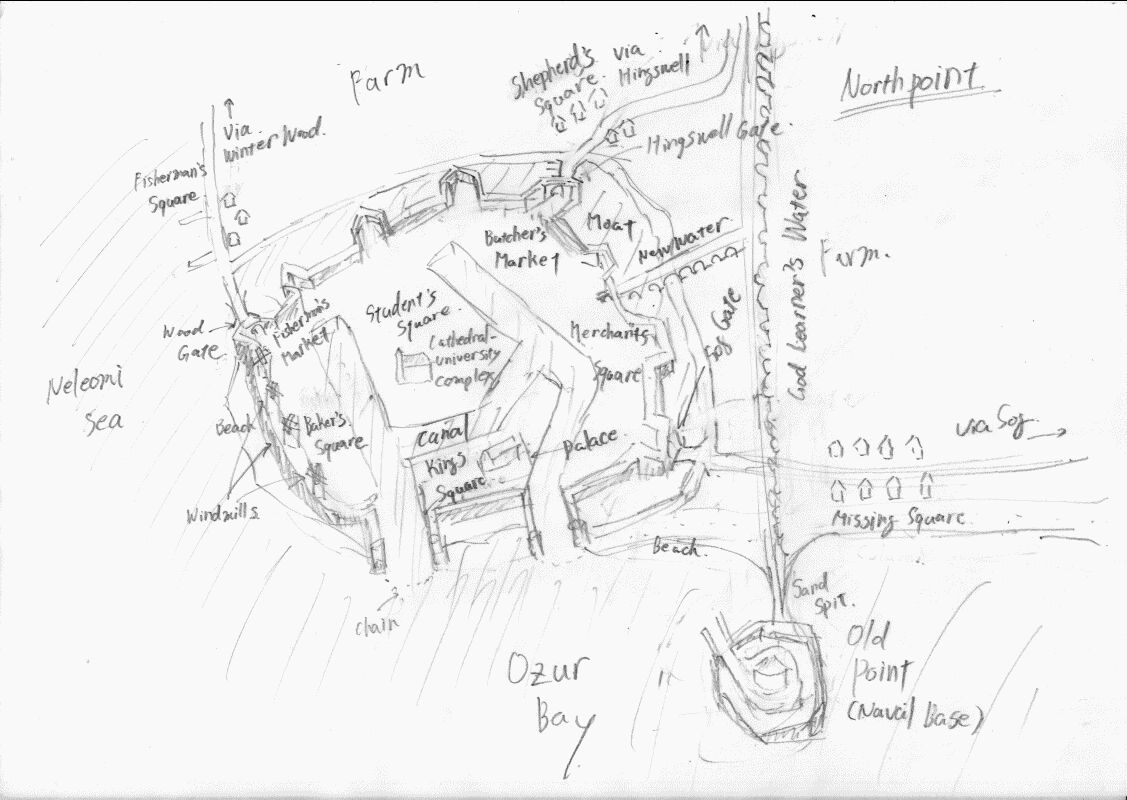 Farm
Shepherd's
Square
via
Hingswell
Northpoint
Via
Winter Wood.
Fisherman's
Square
Hingswell Gate.
Moat
New Water
God Learner's Water
Farm.
Butcher's
Market
Student's
Square
Cathedral-
university
complex
Merchants
Square
Sog Gate
Wood
Gate
Fisherman's
Market
Neleomi
Sea
Beach
Baker's
Square
Canal
Kings
Square
Palace
Windmills
via Sog
Missing Square
Beach
Sand
Spit.
chain
Ozur
Bay
Old
Point
(Naval Base)